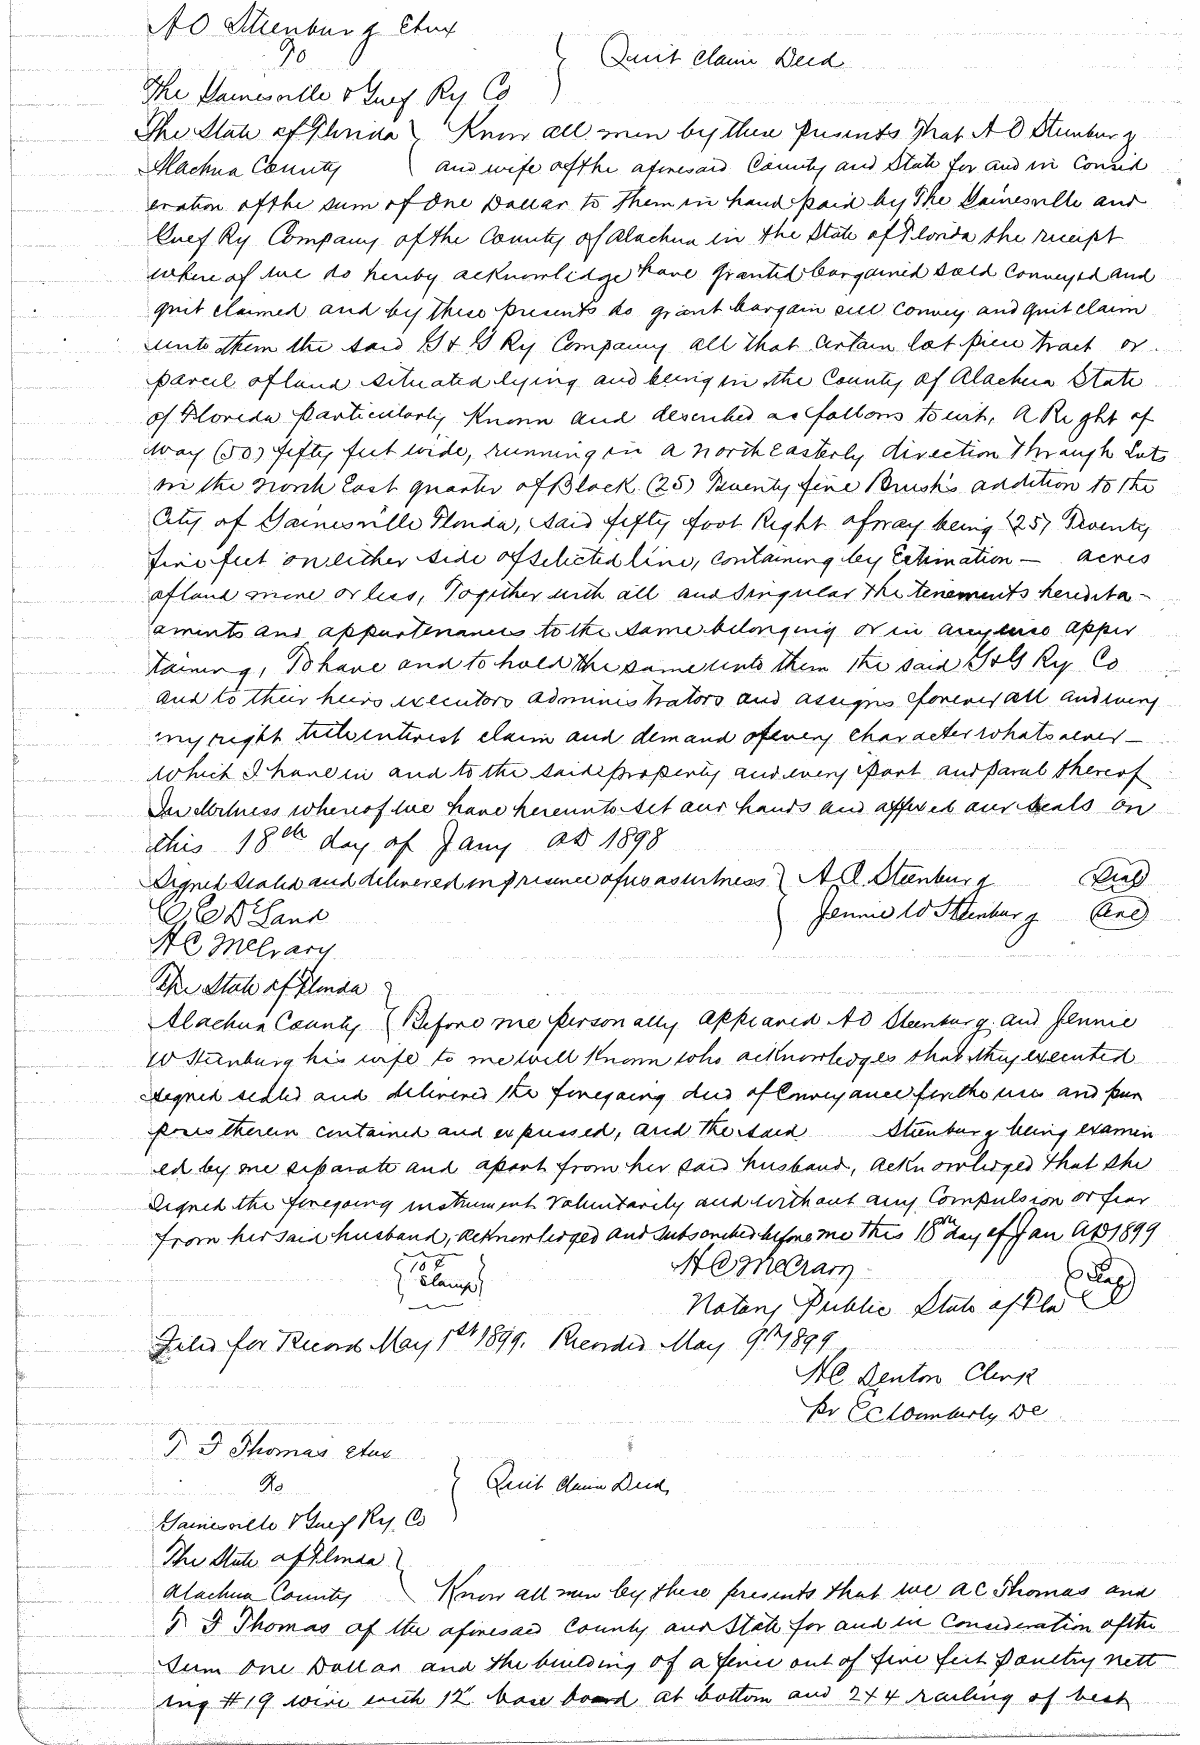 A O Steenburg Etux
To
Quit Claim Deed
The Gainesville & Gulf Ry Co
The State of Florida Know all men by these presents That A O Steenburg
Alachua County and wife of the aforesaid County and State for and in Consid
eration of the sum of One Dollar to them in hand paid by The Gainesville and
Gulf Ry Company of the County of Alachua in the State of Florida the receipt
where of we do hereby acknowledge have granted bargained sold conveyed and
quit claimed and by these presents do grant bargain sell convey and quit claim
unto them the said G & G Ry Company all that certain lot piece tract or
parcel of land situated lying and being in the County of Alachua State
of Florida particularly Known and described as follows to wit, A Right of
way (50) fifty feet wide, running in a north easterly direction Through Lots
in the north East quarter of Block (25) Twenty five Brush's addition to the
City of Gainesville Florida, said fifty foot Right of way being (25) Twenty
five feet on either side of selected line, containing by Estimation — acres
of land more or less, Together with all and singular the tenements heredita-
aments and appurtenances to the same belonging or in anywise apper
taining, To have and to hold the same unto them the said G & G Ry Co
and to their heirs executors administrators and assigns forever all and every
my right title interest claim and demand of every character whatsoever —
which I have in and to the said property and every part and parcel thereof
In Witness whereof we have hereunto set our hands and affixed our seals on
this 18th day of Jany AD 1898
Signed sealed and delivered in presence of us as witness A. O. Steenburg Seal
C C D Land Jennie W Steenburg Seal
H C McCrary
The State of Florida
Alachua County Before me personally appeared A O Steenburg and Jennie
W Steenburg his wife to me well Known who acknowledges that they executed
signed sealed and delivered the foregoing deed of Conveyance for the uses and pur
poses therein contained and expressed, and the said Steenburg being examin
ed by me separate and apart from her said husband, acknowledged that she
signed the foregoing instrument voluntarily and without any Compulsion or fear
from her said husband, acknowledged and subscribed before me this 18th day of Jan AD 1899
10¢ Stamp
H C McCrary
Notary Public State of Fla Seal
Filed for Record May 1st 1899. Recorded May 9th 1899
H C Denton Clerk
Pr E C Wimberly DC
T J Thomas etux
To
Quit Claim Deed
Gainesville & Gulf Ry Co
The State of Florida
Alachua County Know all men by these presents that we A C Thomas and
T J Thomas of the aforesaid County and State for and in Consideration of the
sum One Dollar and the building of a fence out of five feet Poultry nett
ing #19 wire with 12" base board at bottom and 2x4 railing of best